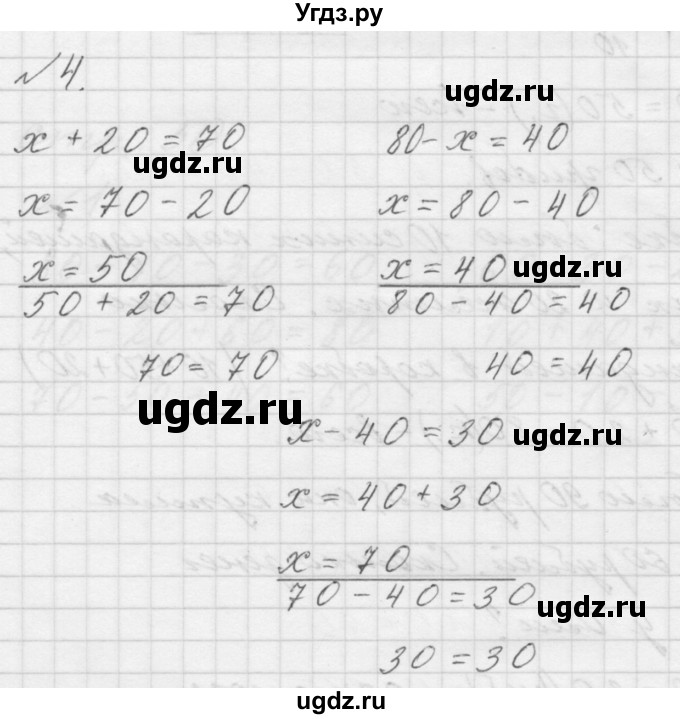 Угдз.ру
№ 4.
ugdz.ru
x + 20 = 70
ugdz.ru
x = 70 - 20
x = 50
50 + 20 = 70
70 = 70
80 - x = 40
x = 80 - 40
x = 40
ugdz.ru
80 - 40 = 40
40 = 40
ugdz.ru
x - 40 = 30
ugdz.ru
x = 40 + 30
x = 70
70 - 40 = 30
ugdz.ru
30 = 30
ugdz.ru